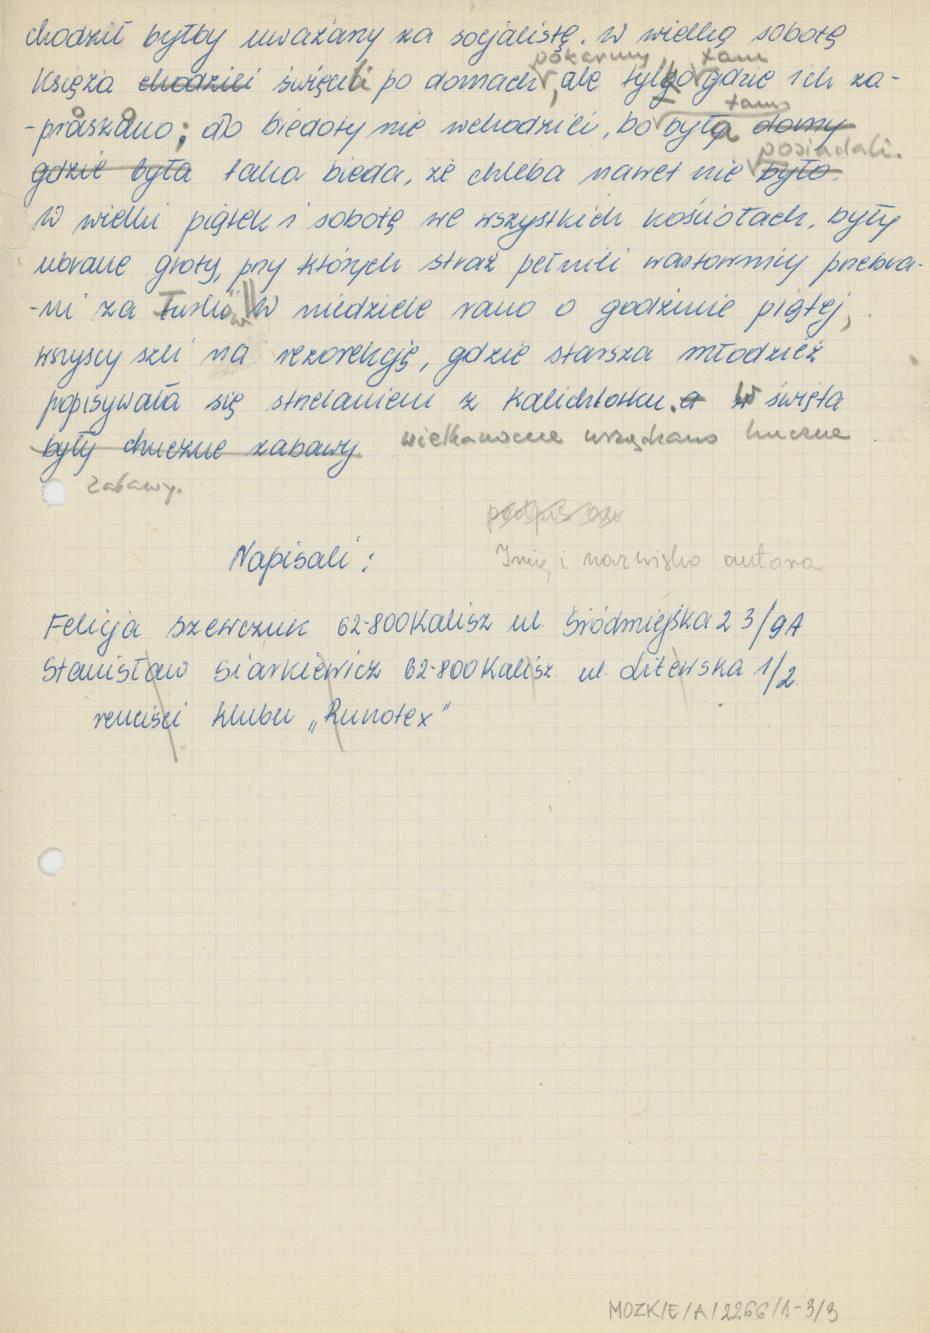 chodził byłby uważany za socjalistę. W wielką sobotę
pokarmy tam
Księża chodzili święcili po domach, ale tylko gdzie ich za-
tam
-praszano; do biedoty nie wchodzili, bo była domy
posiadali.
gdzie była taka bieda, że chleba nawet nie było.
W wielki piątek i sobotę we wszystkich kościołach, były
ubrane groty, przy których straż pełnili wartownicy przebra-
-ni za Turków W niedziele rano o godzinie piątej,
wszyscy szli na rezorekcję, gdzie starsza młodzież
popisywała się strzelaniem z Kalichlorku. a W święta
były chuczne zabawy wielkanocne urządzano huczne
zabawy.
podpis
Napisali: Imię i nazwisko autora
Felicja Szewczuk 62-800 Kalisz ul Śródmiejska 23/9A
Stanisław Siarkiewicz 62-800 Kalisz ul. Litewska 1/2
renciści Klubu „Runotex"
MOZK/E/A/2266/1-3/3